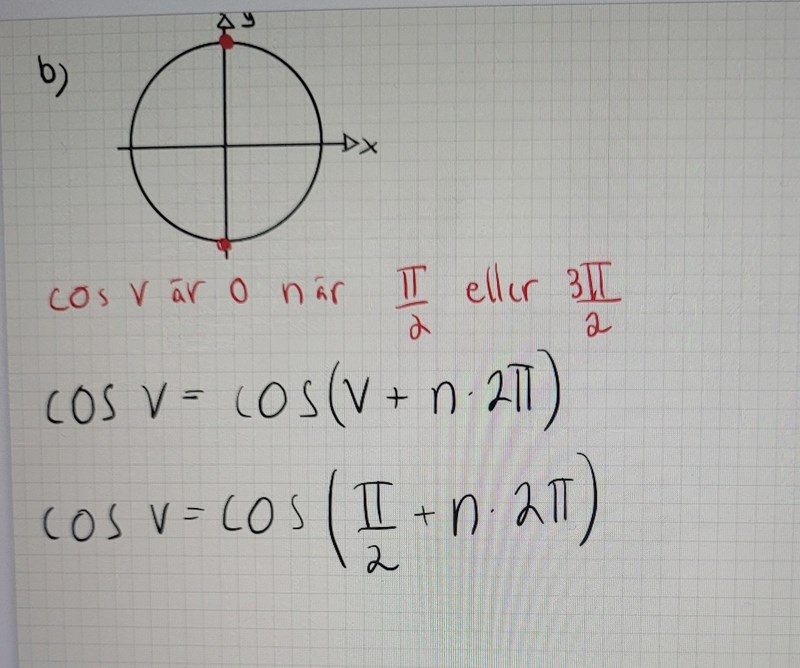 y
b)
x
cos v är 0 när π/2 eller 3π/2
cos v = cos(v + n · 2π)
cos v = cos(π/2 + n · 2π)